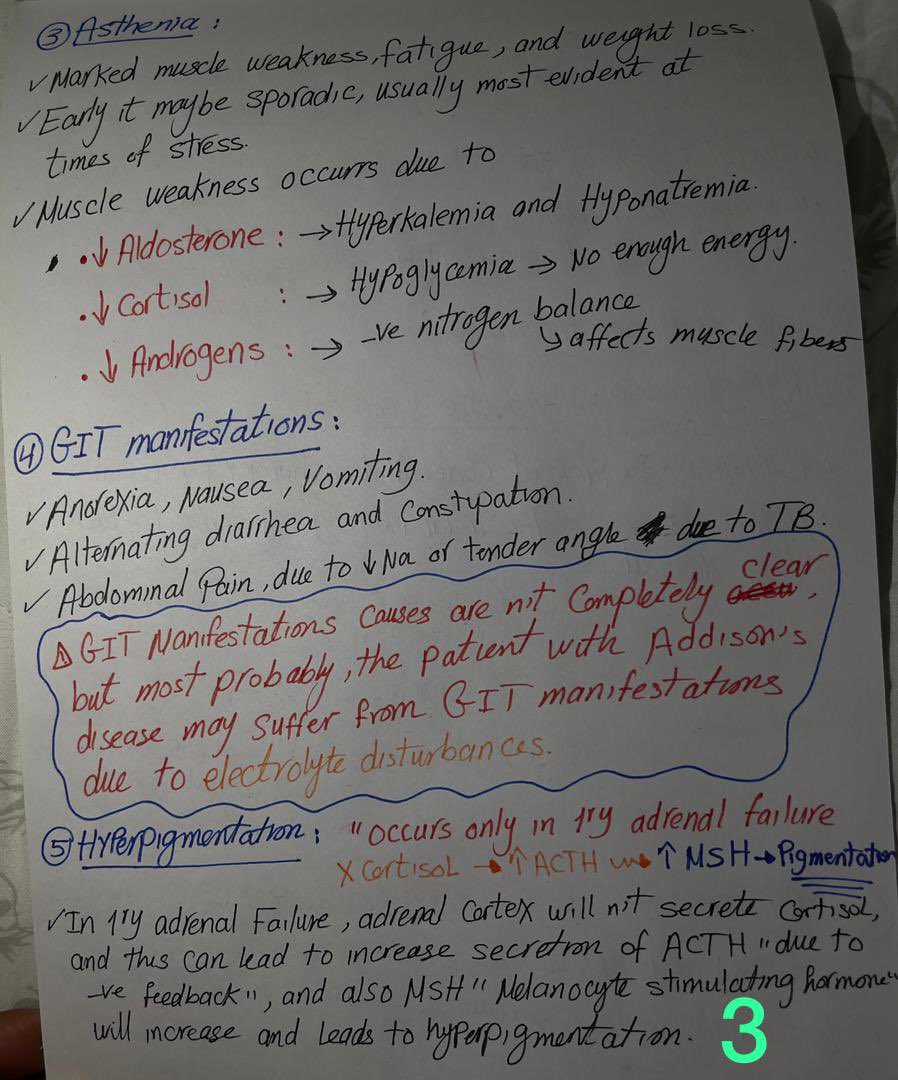 ③ Asthenia :
✓ Marked muscle weakness, fatigue, and weight loss.
✓ Early it maybe sporadic, usually most evident at
times of stress.
✓ Muscle weakness occurrs due to
• ↓ Aldosterone : → Hyperkalemia and Hyponatremia.
• ↓ Cortisol : → Hypoglycemia → No enough energy.
• ↓ Androgens : → -ve nitrogen balance
↳ affects muscle fibers
④ GIT manifestations :
✓ Anorexia, Nausea, Vomiting.
✓ Alternating diarrhea and Constipation.
✓ Abdominal Pain, due to ↓ Na or tender angle due to TB.
⚠ GIT Manifestations causes are n't Completely clear,
but most probably, the patient with Addison's
disease may suffer from GIT manifestations
due to electrolyte disturbances.
⑤ Hyperpigmentation : "occurs only in 1ry adrenal failure
X Cortisol → ↑ ACTH → ↑ MSH → Pigmentation
✓ In 1ry adrenal Failure, adrenal Cortex will n't secrete Cortisol,
and this can lead to increase secretion of ACTH "due to
-ve feedback", and also MSH "Melanocyte stimulating hormone"
will increase and leads to hyperpigmentation.
3